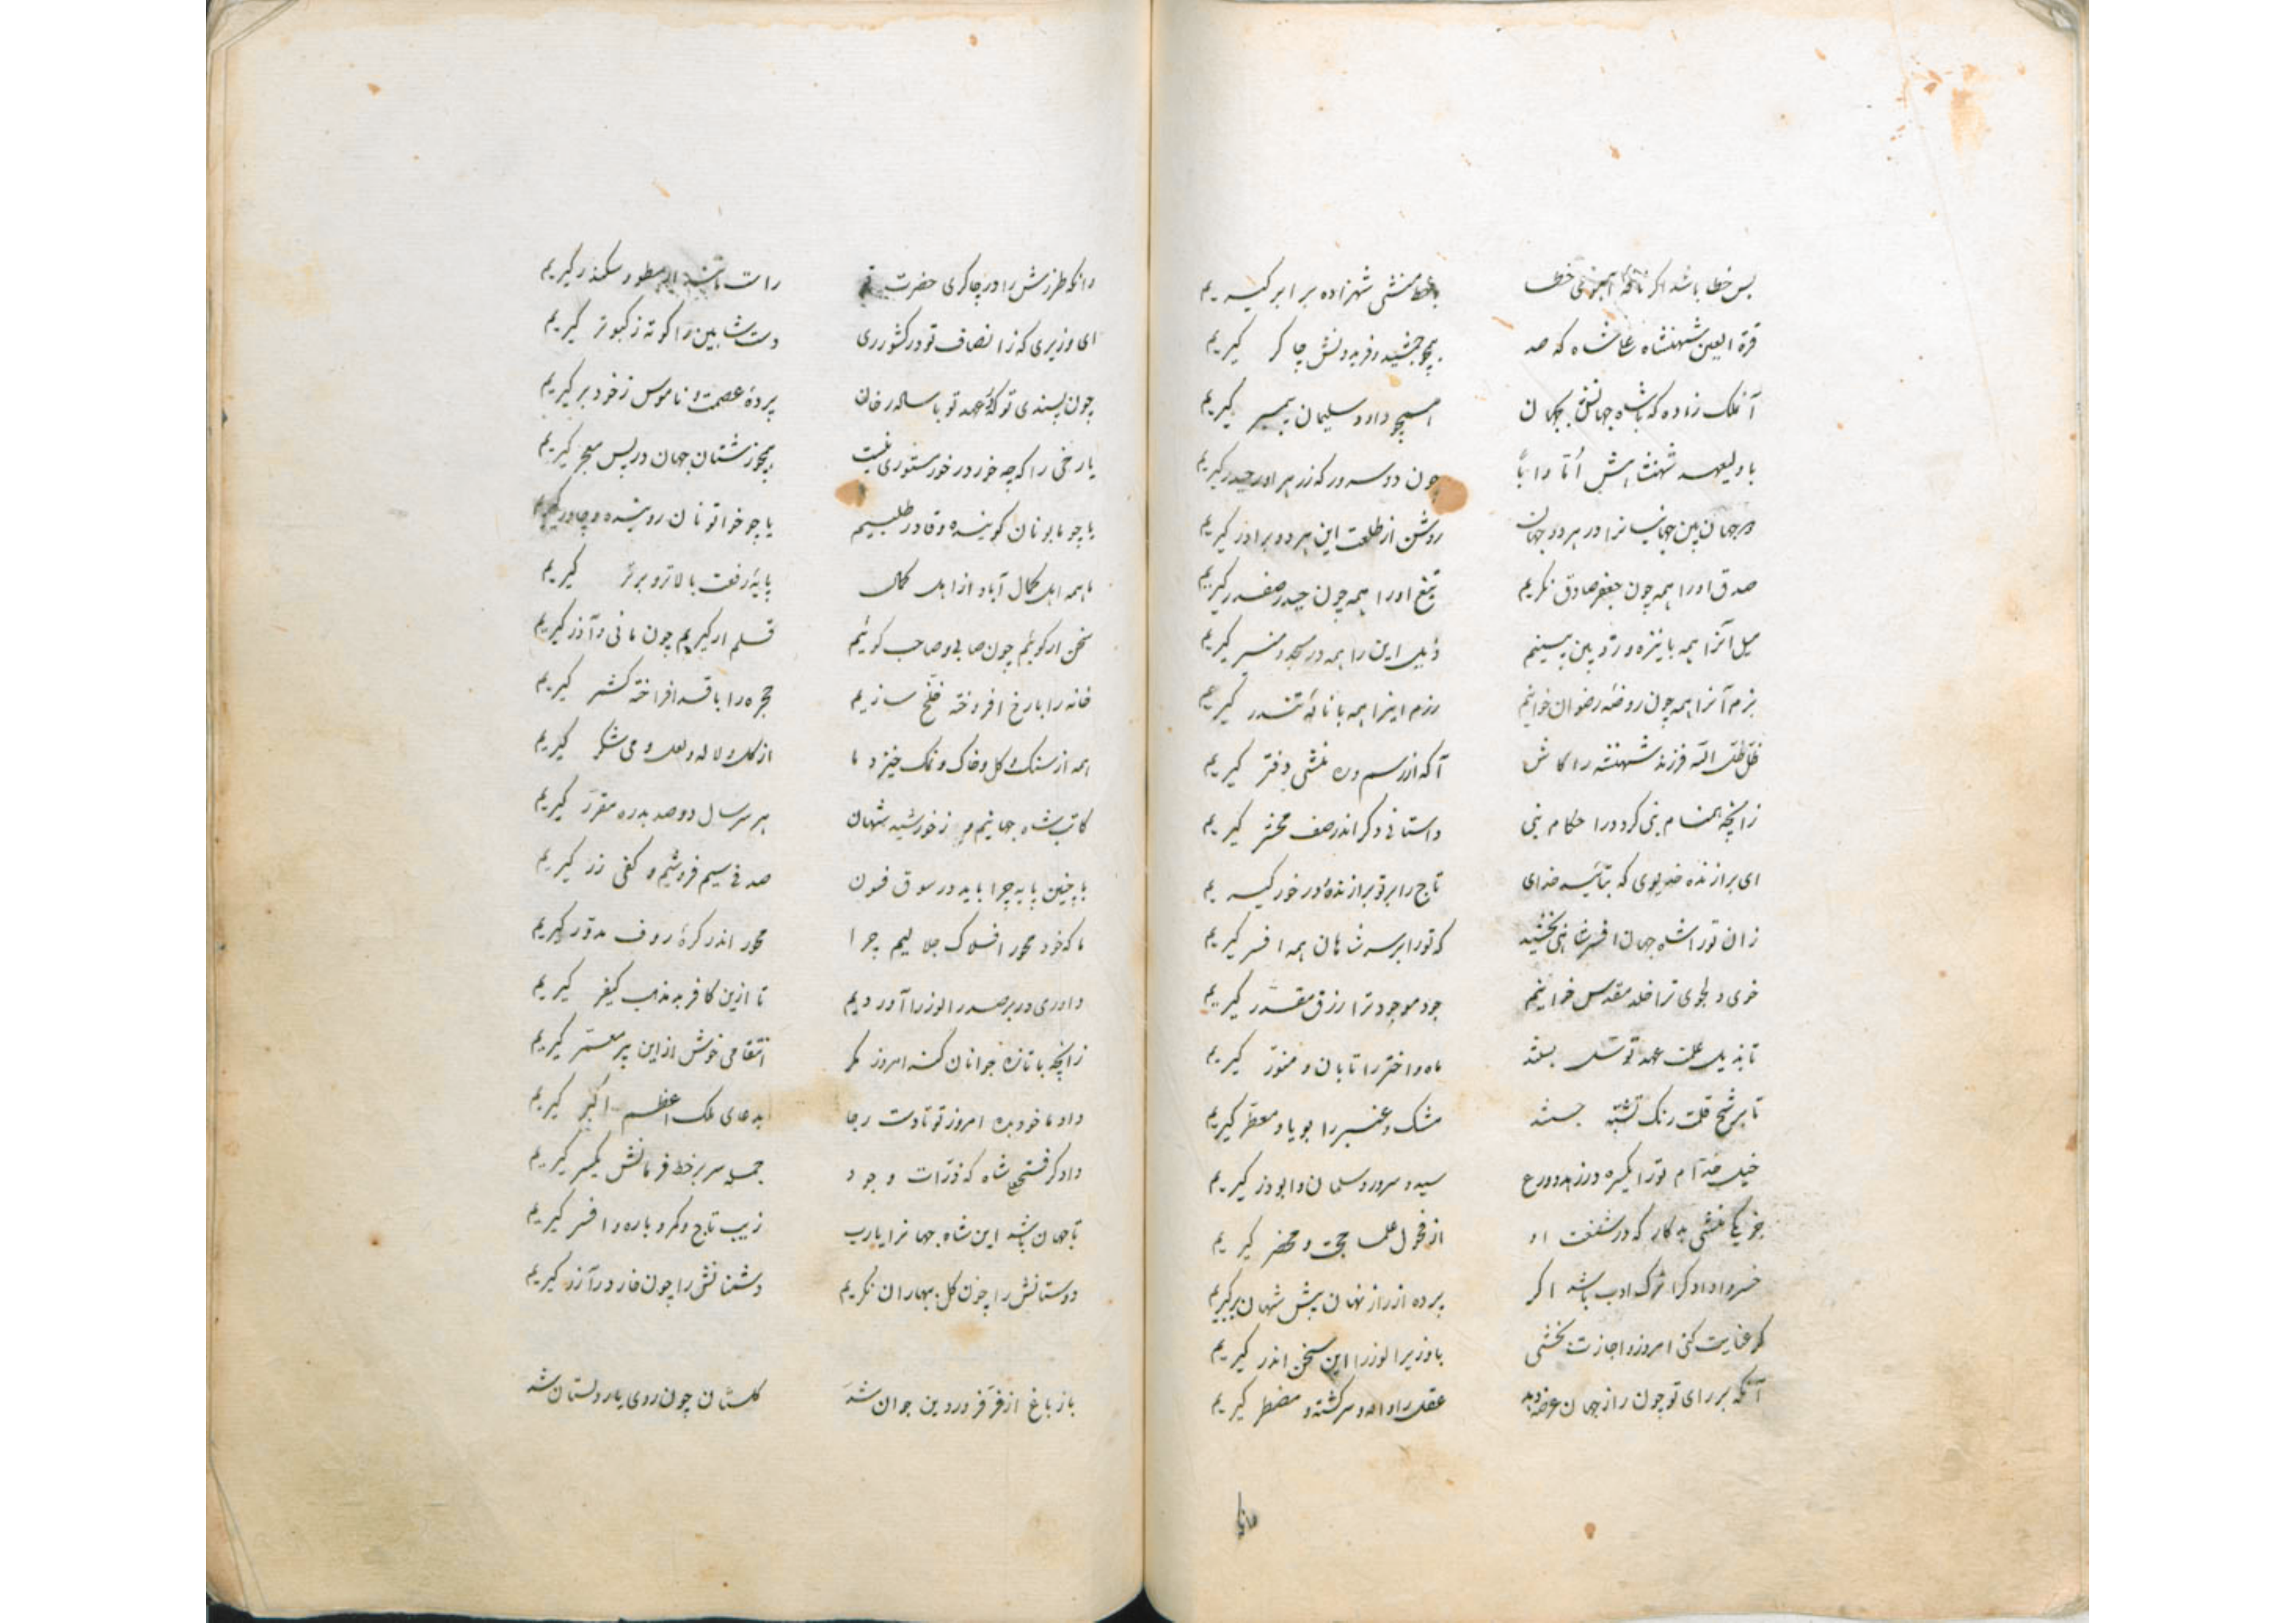 بس خطا باشد اگر نافهٔ آهوی خطا با خط منشی شهزاده برابر گیریم
قرة العین شهنشاه علیشاه که صد همچو جمشید و فریدونش چاکر گیریم
آن ملک زاده که با شاه جهانش بجهان همچو داود و سلیمان پیمبر گیریم
با ولیعهد شهنشاهش اُمّاً و اباً چون دو سرور که ز زهرا و ز حیدر گیریم
جهان بین جهانبانرا در هر دو جهان روشن از طلعت این هر دو برادر گیریم
صدق او را همه چون جعفر صادق نگریم تیغ او را همه چون حیدر صفدر گیریم
میل آنرا همه با نیزه و زوبین بینیم ذیل این را همه در مسجد و منبر گیریم
بزم آنرا همه چون روضهٔ رضوان خوانیم رزم اینرا همه با نالهٔ تندر گیریم
ظل ظل الله فرزند شهنشه را کاش آگه از رسم و ره منشی دفتر گیریم
زانچه هنگام بنی کرد در احکام بنی داستانی دگر اندر صف محشر گیریم
ای برازنده خدیوی که بتأیید خدای تاج را بر تو برازنده و در خور گیریم
زان تو را شاه جهان افسر شاهی بخشید که تو را بر سر شاهان همه افسر گیریم
خوی دلجوی ترا خلد مقدس خوانیم جود موجود ترا رزق مقدر گیریم
تا بذیل علمت عهد توسل بستند ماه و اختر را تابان و منور گیریم
تا برشح قلمت رنگ تشبّه جستند مشک و عنبر را بویا و معطر گیریم
خیل خدّام تو را یکسره در زهد و ورع سید و سرور و سلمان و ابوذر گیریم
جز یکی منشی بدکار که در شنعت او از فحول علما حجت و محضر گیریم
خسروا دادگرا ترک ادب باشد اگر پرده از راز نهان پیش شهان برگیریم
گر عنایت کنی امروز و اجازت بخشی با وزیر الوزرا این سخن اندر گیریم
آنکه بر رای تو چون راز جهان عرضه دهد عقل را واله و سرگشته و مضطر گیریم
وانکه طرزش را در چاکری حضرت تو راست مانند ارسطو و سکندر گیریم
ای وزیری که ز انصاف تو در کشور ری دست شاهین را کوته ز کبوتر گیریم
چون پسندی تو که در عهد تو با ساده رخان پردهٔ عصمت و ناموس ز خود بر گیریم
یا رخی را که چه خور در خور مستوری نیست همچو زشتان جهان در پس معجر گیریم
یا چو بابونان گوینده و قادر طلبیم یا چو خواتونان روبنده و چادر گیریم
ما همه اهل کمال آباد از اهل کمال پایهٔ رفعت بالاتر و برتر گیریم
سخن ار گوئیم چون صابی و صاحب گوئیم قلم ار گیریم چون مانی و آذر گیریم
خانه را با رخ افروخته خلّخ سازیم حجره را با قد افراخته کشمر گیریم
همه از سنگ و گل و خاک و نمک خیزد ما از گل و لاله و لعل و می و شکر گیریم
کاتب شاه جهانیم و ز خورشید شهان هر سر سال دو صد بدره مقرر گیریم
با چنین پایه چرا باید در سوق فسون صدفی سیم فروشیم و کفی زر گیریم
ما که خود محور افلاک جلالیم چرا محور اندر کرهٔ روف مدوّر گیریم
داوری در بر صدر الوزرا آوردیم تا ازین کافر بد مذهب کیفر گیریم
زانچه با تازه جوانان کند امروز مگر انتقامی خوش از این پیر معمّر گیریم
داد ما خود بده امروز تو تا دست رجا بدعای ملک اعظم اکبر گیریم
دادگر فتحعلیشاه که ذرّات وجود جمله سر بر خط فرمانش یکسر گیریم
تا جهان باشد این شاه جهانرا یارب زیب تاج و کمر و یاره و افسر گیریم
دوستانش را چون گل ببهاران نگریم دشمنانش را چون خار در آذر گیریم
باز باغ از فرّ فروردین جوان شد گلستان چون روی یار دلستان شد